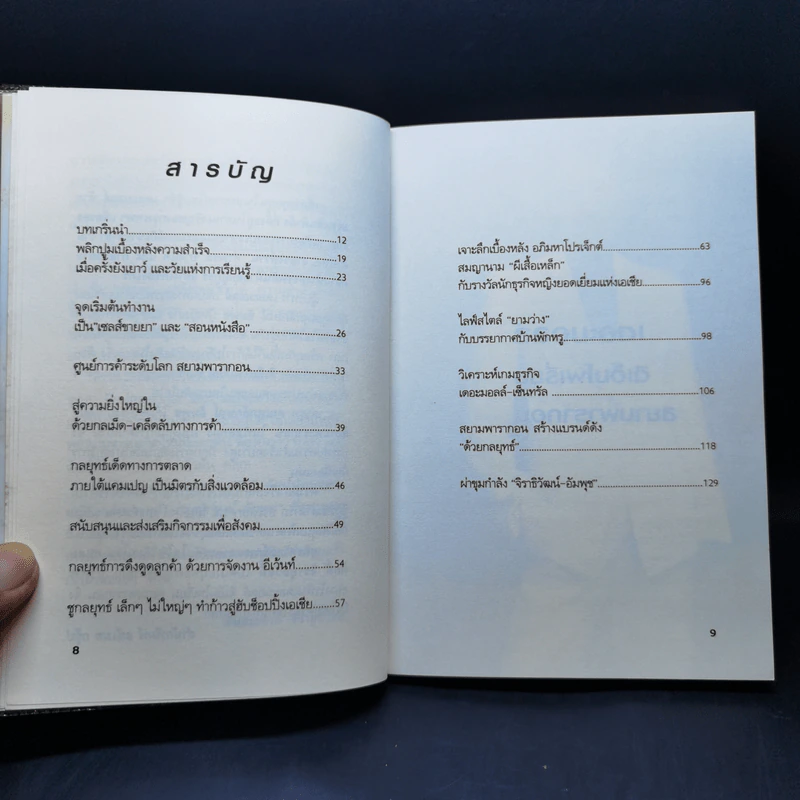 สารบัญ
บทเกริ่นนำ........................................12
พลิกปูมเบื้องหลังความสำเร็จ........................................19
เมื่อครั้งยังเยาว์ และวัยแห่งการเรียนรู้........................................23
จุดเริ่มต้นทำงาน
เป็น"เซลส์ขายยา" และ "สอนหนังสือ"........................................26
ศูนย์การค้าระดับโลก สยามพารากอน........................................33
สู่ความยิ่งใหญ่ใน
ด้วยกลเม็ด-เคล็ดลับทางการค้า........................................39
กลยุทธ์เด็ดทางการตลาด
ภายใต้แคมเปญ เป็นมิตรกับสิ่งแวดล้อม........................................46
สนับสนุนและส่งเสริมกิจกรรมเพื่อสังคม........................................49
กลยุทธ์การดึงดูดลูกค้า ด้วยการจัดงาน อีเว้นท์........................................54
ชูกลยุทธ์ เล็กๆ ไม่ใหญ่ๆ ทำก้าวสู่ฮับช็อปปิ้งเอเชีย........................................57
8
เจาะลึกเบื้องหลัง อภิมหาโปรเจ็กต์........................................63
สมญานาม "ผีเสื้อเหล็ก"
กับรางวัลนักธุรกิจหญิงยอดเยี่ยมแห่งเอเชีย........................................96
ไลฟ์สไตล์ "ยามว่าง"
กับบรรยากาศบ้านพักหรู........................................98
วิเคราะห์เกมธุรกิจ
เดอะมอลล์-เซ็นทรัล........................................106
สยามพารากอน สร้างแบรนด์ดัง
"ด้วยกลยุทธ์"........................................118
ผ่าขุมกำลัง "จิราธิวัฒน์-อัมพุช"........................................129
9